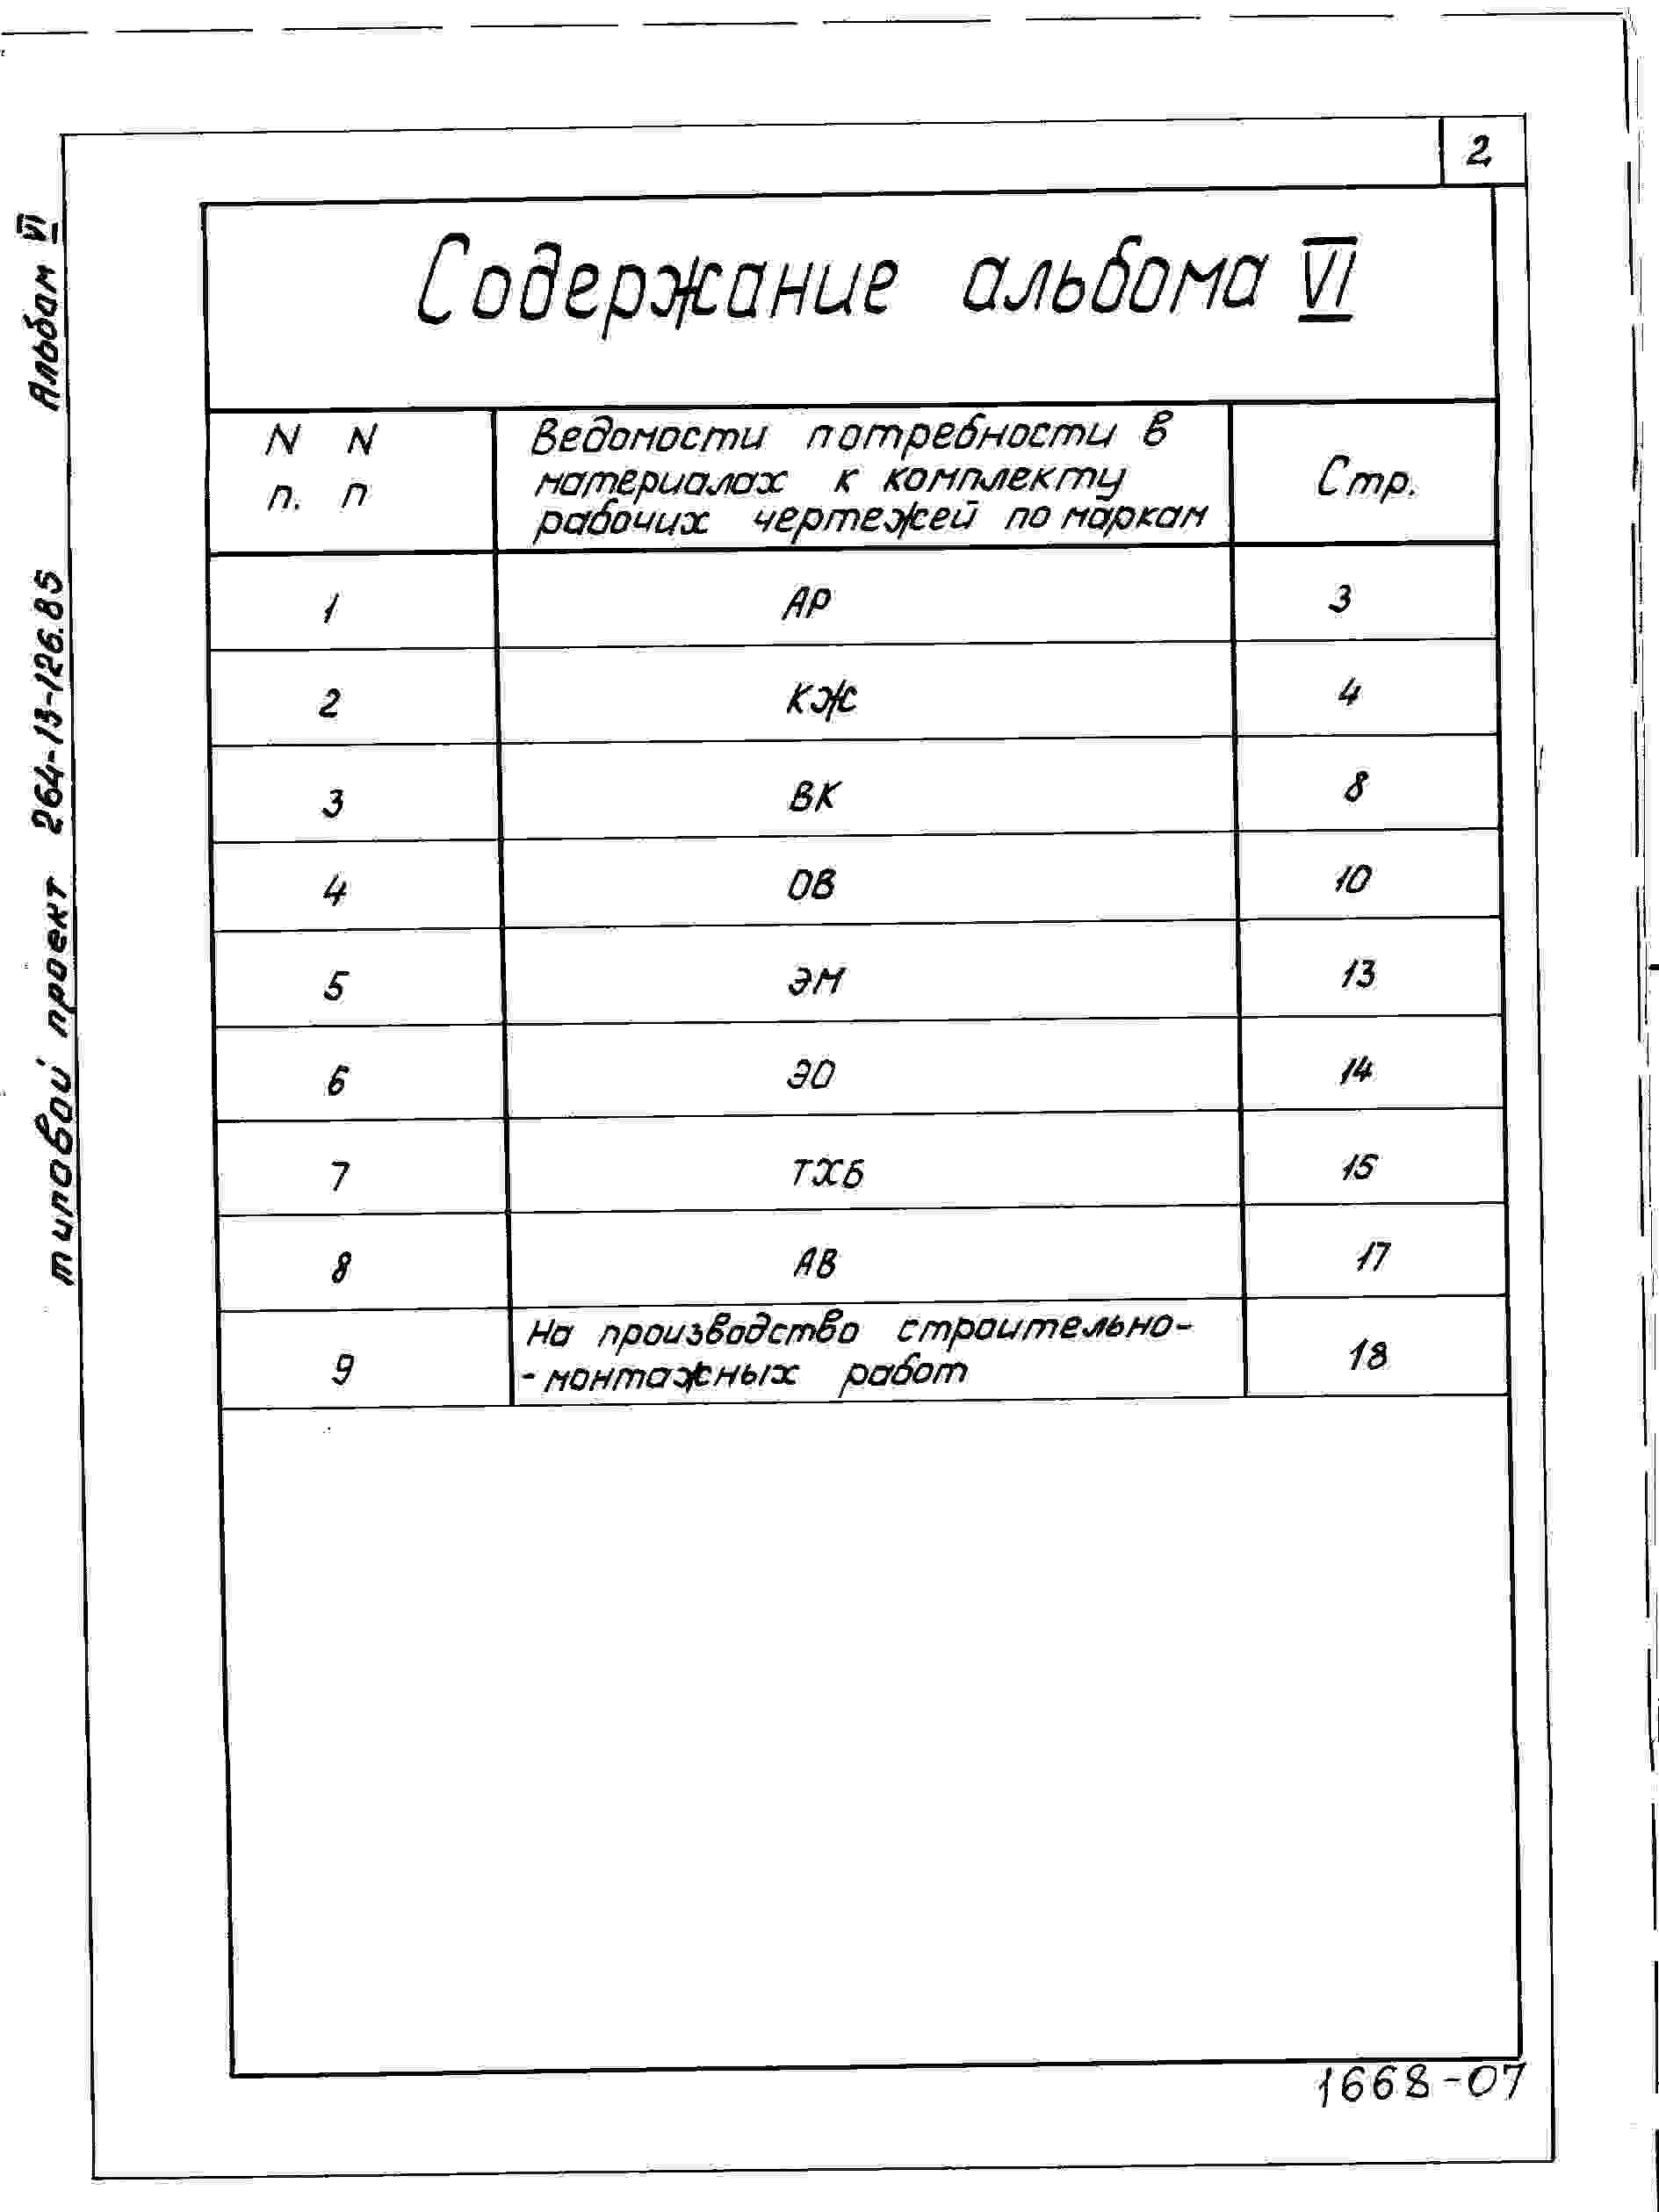 2
Альбом VI
типовой проект 264-13-126.85
Содержание альбома VI
N N
п. п
Ведомости потребности в
материалах к комплекту
рабочих чертежей по маркам
Стр.
1 АР 3
2 КЖ 4
3 ВК 8
4 ОВ 10
5 ЭМ 13
6 ЭО 14
7 ТХБ 15
8 АВ 17
9 На производство строительно-
-монтажных работ 18
1668-07